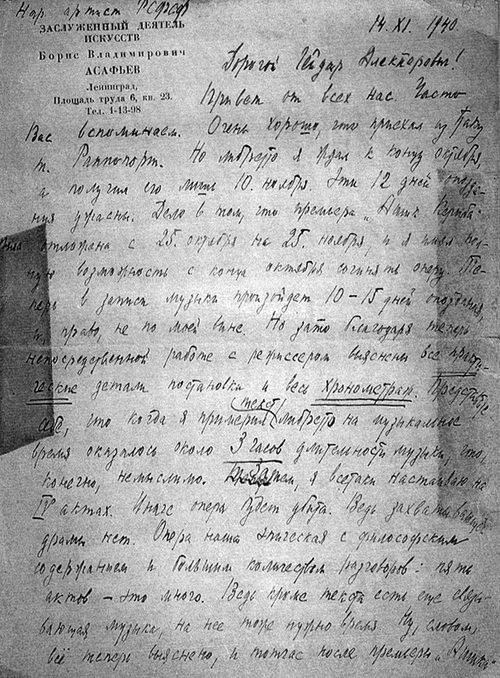 Нар. артист РСФСР
ЗАСЛУЖЕННЫЙ ДЕЯТЕЛЬ
ИСКУССТВ
Борис Владимирович
АСАФЬЕВ
Ленинград,
Площадь труда 6, кв. 23.
Тел. 1-13-98
14. XI. 1940
Дорогой Гейдар Александрович!
Привет от всех нас. Часто
Вас вспоминаем. Очень хорошо, что приехал из Баку
т. Раппопорт. Но либретто я ждал к концу октября,
а получил его лишь 10. ноября. Эти 12 дней опозда-
ния ужасны. Дело в том, что премьера „Ашик Кериба"
была отложена с 25. октября на 25. ноября, и я имел пол-
ную возможность с конца октября сочинять оперу. Те-
перь в записи музыки произойдет 10-15 дней опоздания,
и, право, не по моей вине. Но зато благодаря теперь
непосредственной работе с режиссером выяснены все практи-
ческие детали постановки и весь хронометраж. Представьте
себе, что когда я примерил текст либретто на музыкальное
время оказалось около 3 часов длительности музыки, что,
конечно, немыслимо. я всетаки настаиваю на
IV актах. Иначе опера будет убита. Ведь захватывающей
драмы нет. Опера наша эпическая с философским
содержанием и большим количеством разговоров: пять
актов - это много. Ведь кроме текста есть еще связы-
вающая музыка, на нее тоже нужно время. Ну, словом,
всё теперь выяснено, и тотчас после премьеры „Ашик